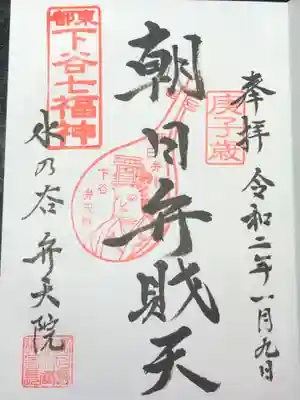 奉拝 令和二年一月九日
庚子歳
朝日弁財天
東都
下谷七福神
下谷
水の谷 弁天院